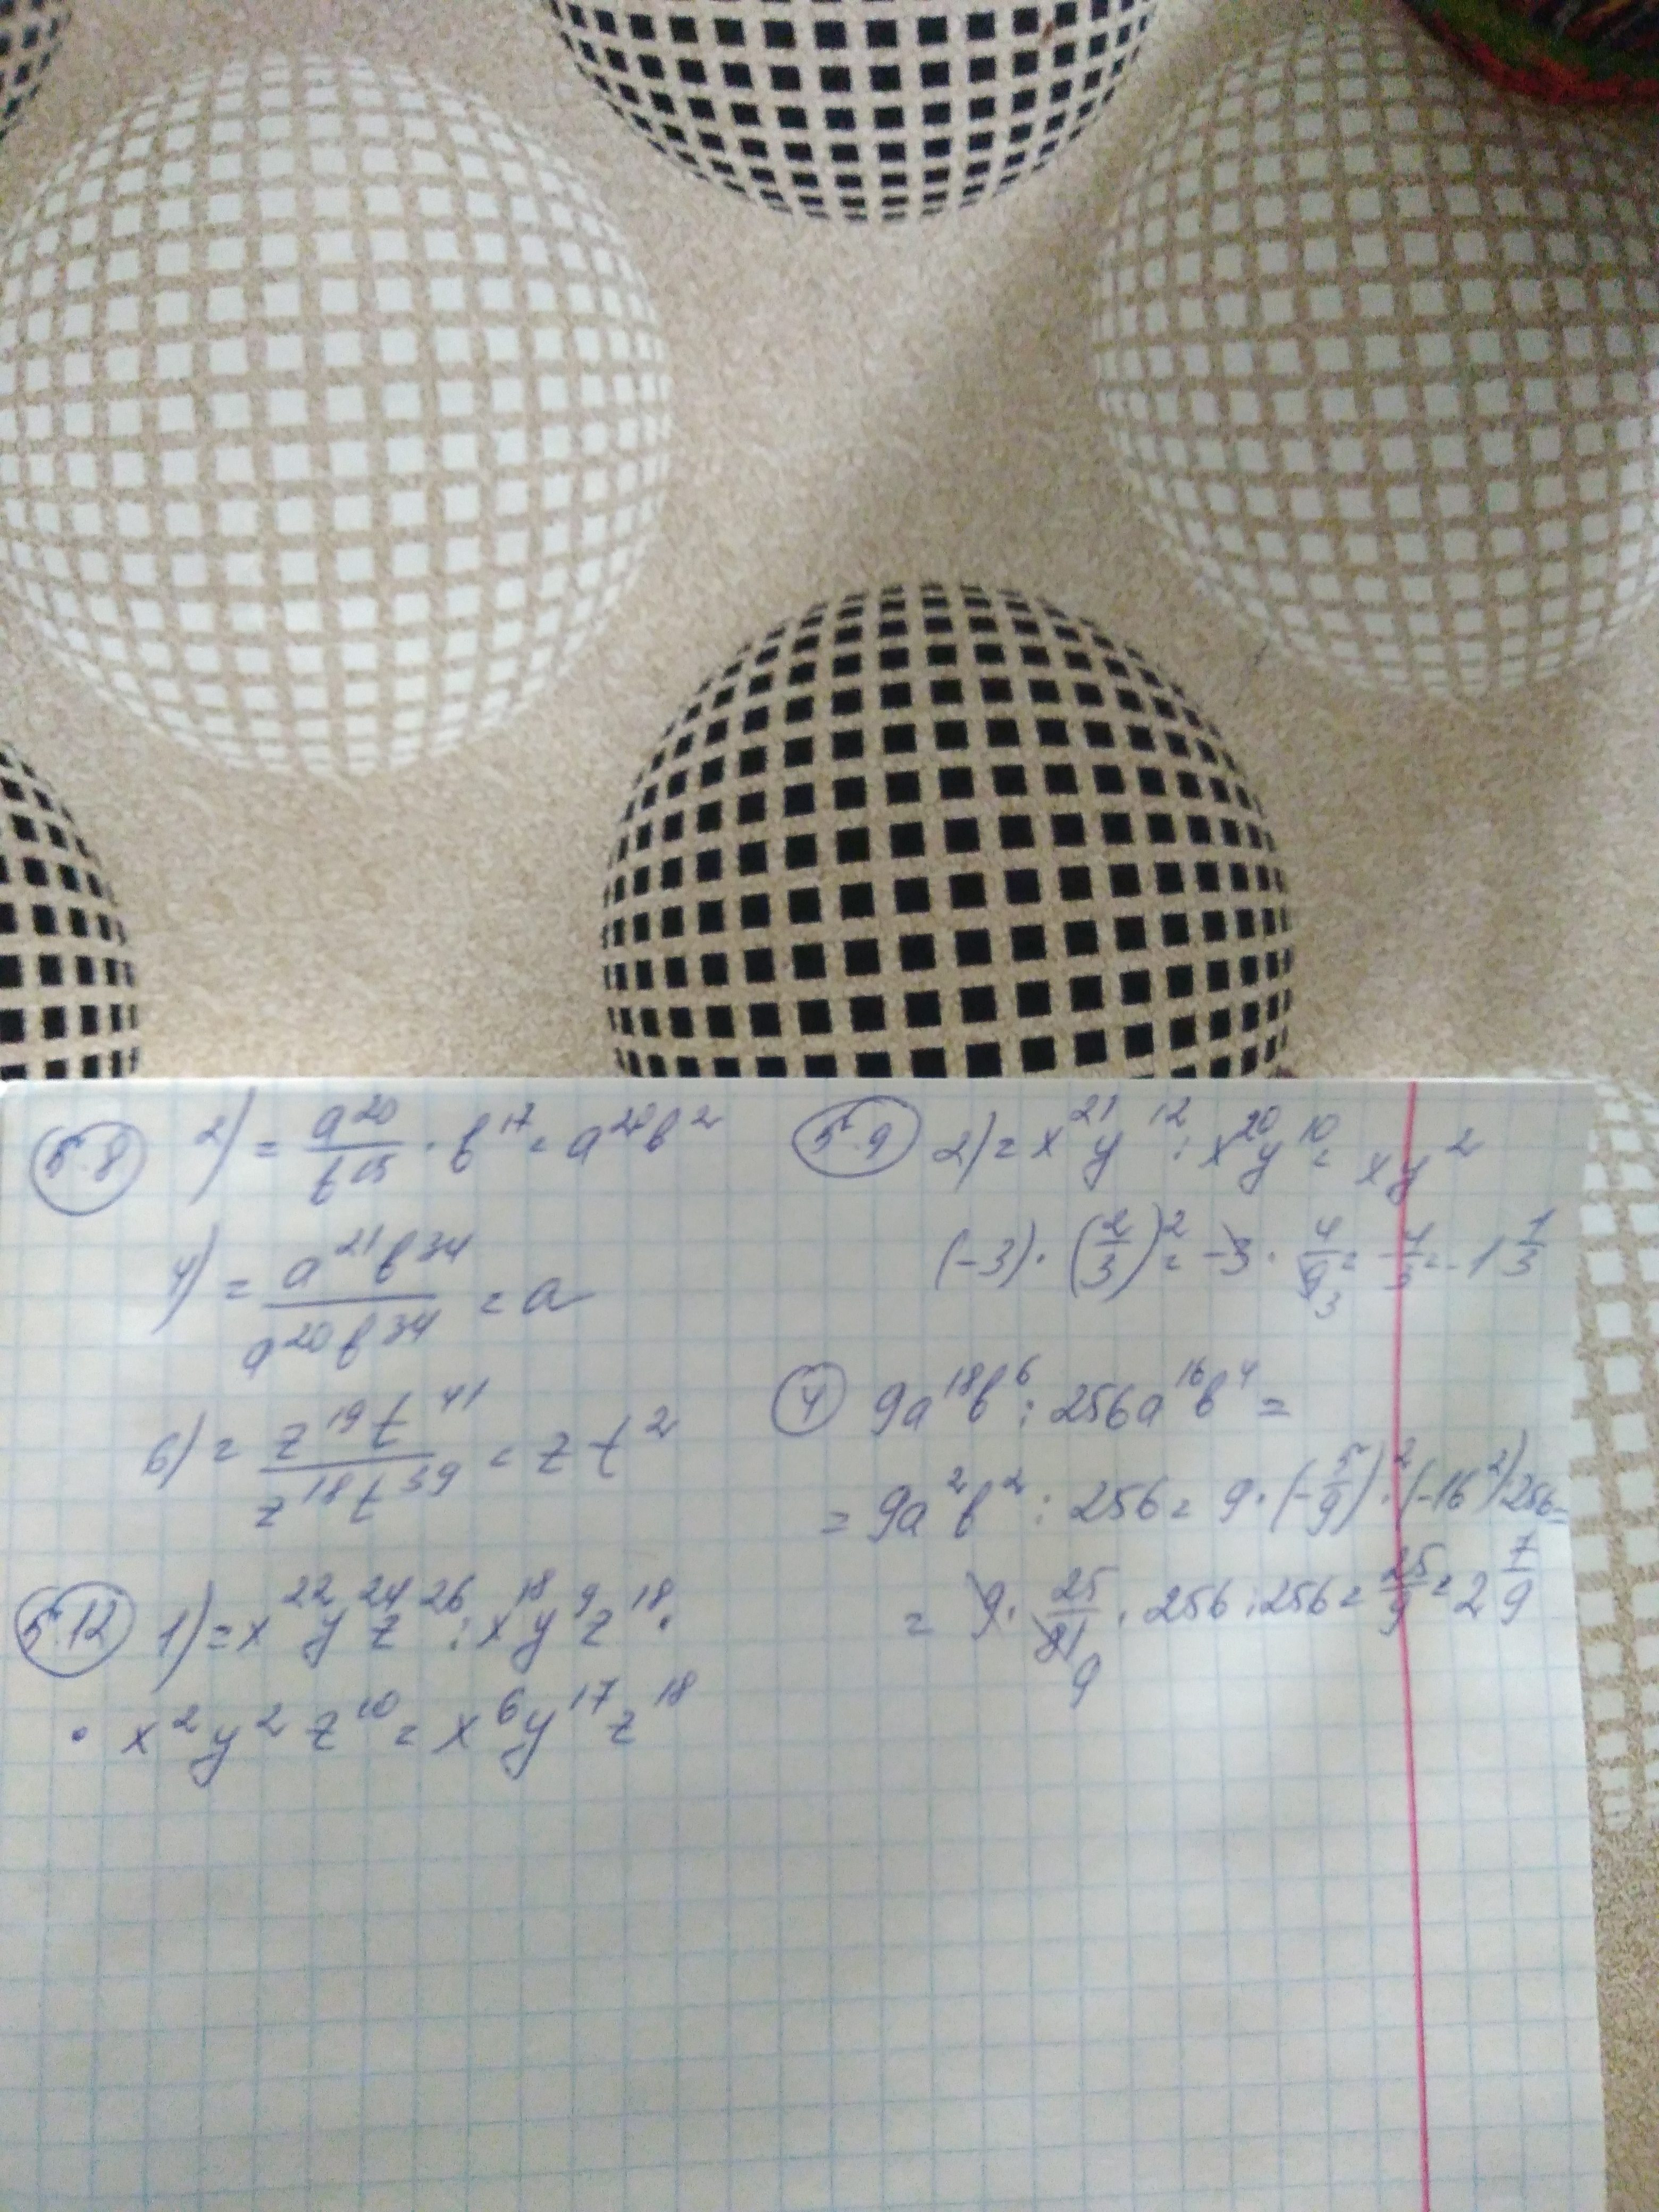 5.8 2) = a²⁰/b¹⁵ · b¹⁷ = a²⁰b²
4) = a²¹b³⁴/a²⁰b³⁴ = a
6) = z¹⁹t⁴¹/z¹⁸t³⁹ = zt²
5.12 1) = x²²y²⁴z²⁶ : x¹⁸y⁹z¹⁸ ·
· x²y²z¹⁰ = x⁶y¹⁷z¹⁸
5.9 2) = x²¹y¹² : x²⁰y¹⁰ = xy²
(-3) · (2/3)² = -3 · 4/9 3 = -4/3 = -1 1/3
4 9a¹⁸b⁶ : 256a¹⁶b⁴ =
= 9a²b² : 256 = 9 · (-5/9)² · (-16²) 256 =
= 9 · 25/81 9 · 256 : 256 = 25/9 = 2 7/9